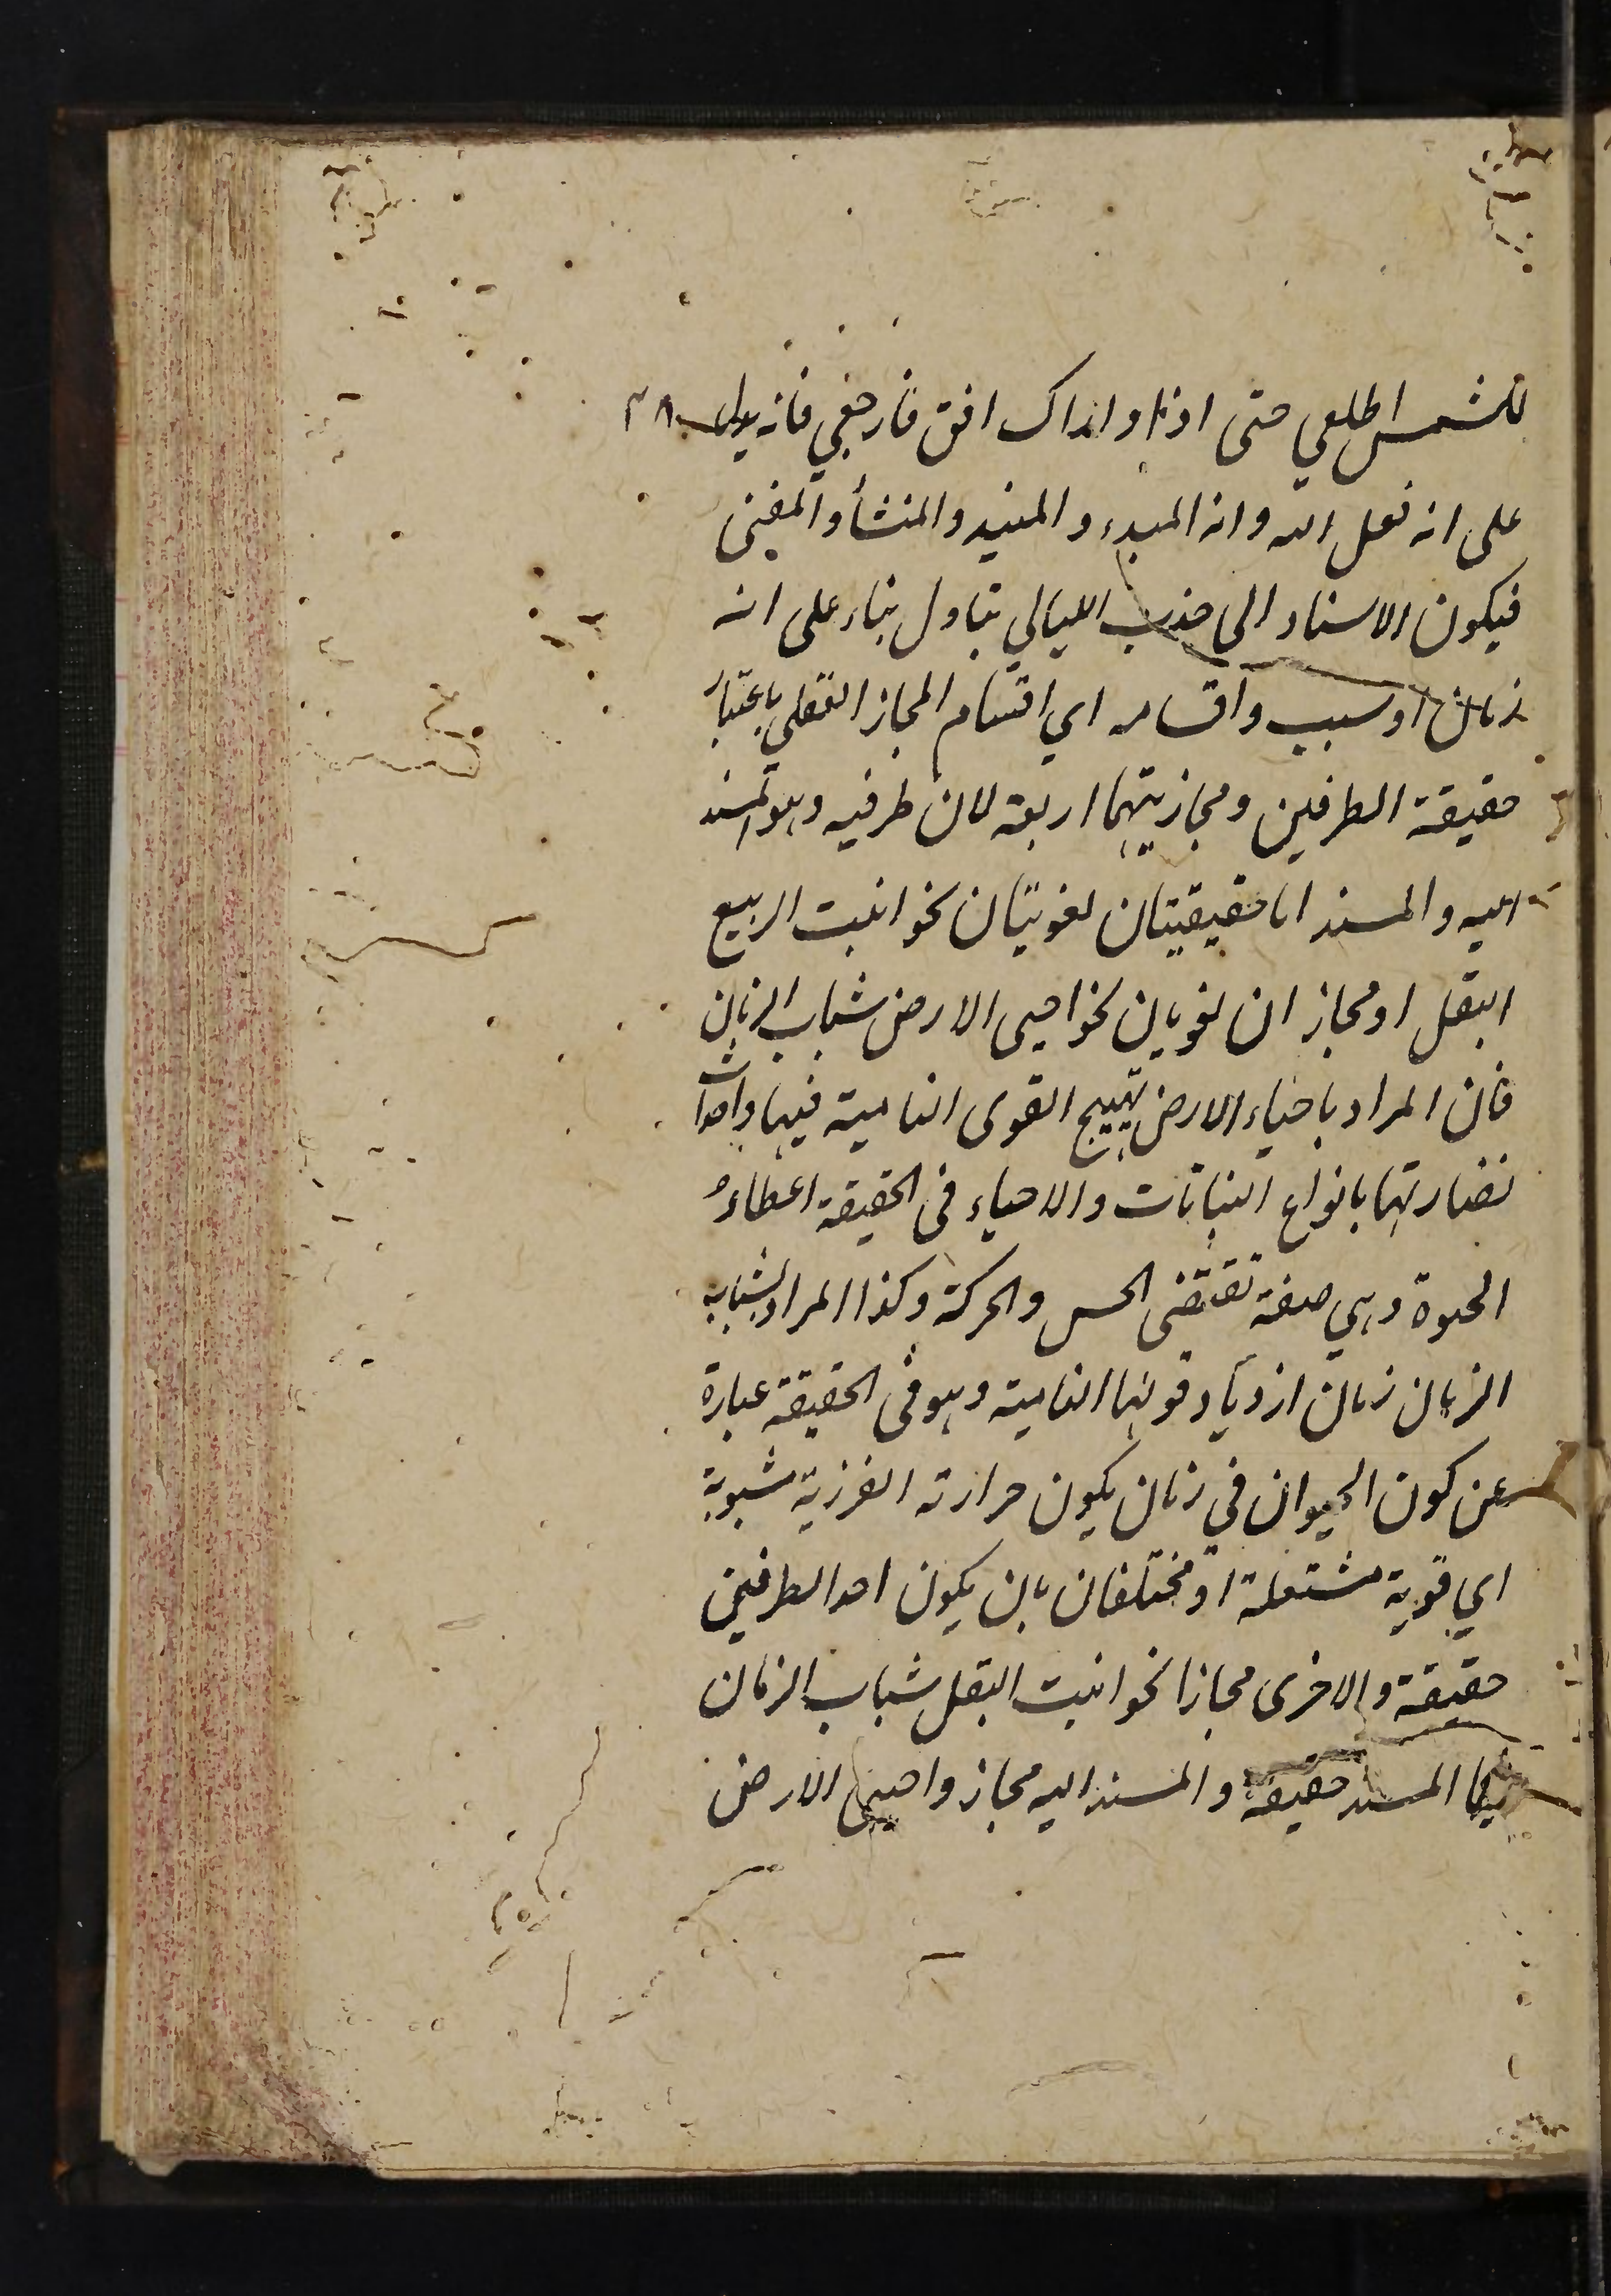 للشمس اطلعي حتى اذا واراك افق فارجعي فانه يدل
على انه فعل الله وانه المبدء والمفيد والمنشأ والمفنى
فيكون الاسناد الى جذب الليالي بتاول بناء على انه
زمان او سبب واقسامه اي اقسام المجاز العقلي باعتبار
حقيقة الطرفين ومجازيتهما اربعة لان طرفيه وهو المسند
اليه والمسند اما حقيقيتان لغويتان نحو انبت الربيع
البقل او مجازان لغويان نحو احيى الارض شباب الزمان
فان المراد باحياء الارض تهييج القوى النامية فيها واحداث
نضارتها بانواع النباتات والاحياء فى الحقيقة اعطاء
الحيوة وهي صفة تقتضى الحس والحركة وكذا المراد بشباب
الزمان زمان ازدياد قوتها النامية وهو فى الحقيقة عبارة
عن كون الحيوان في زمان يكون حرارته الغرزية مشبوبة
اي قوية مشتعلة او مختلفان بان يكون احد الطرفين
حقيقة والاخرى مجازا نحو انبت البقل شباب الزمان
فيما المسند حقيقة والمسند اليه مجاز واحيى الارض